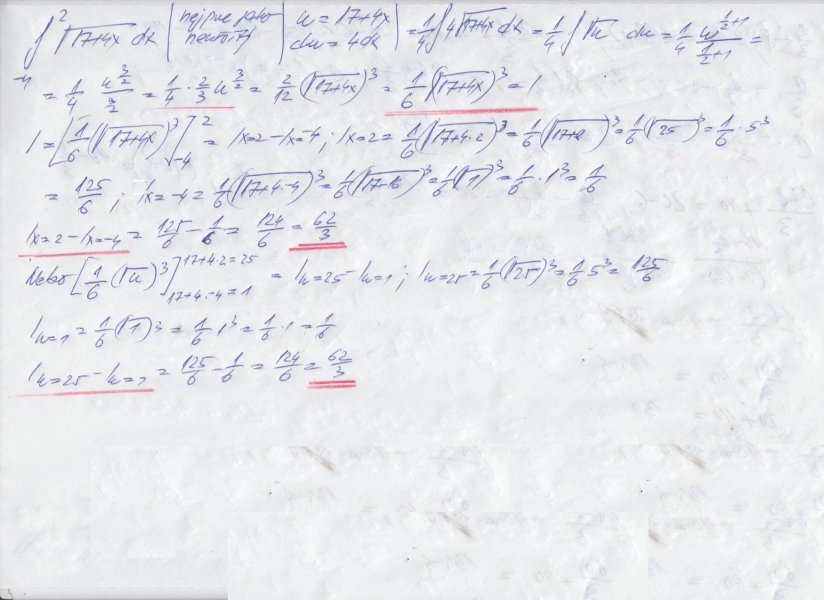 ∫₋₄² √(17+4x) dx | nejprve jako neurčitý | u = 17+4x du = 4dx | = 1/4 ∫ 4√(17+4x) dx = 1/4 ∫ √u du = 1/4 u^(1/2+1)/(1/2+1) =
= 1/4 u^(3/2)/(3/2) = 1/4 · 2/3 u^(3/2) = 2/12 (√(17+4x))³ = 1/6 (√(17+4x))³ = I
I = [1/6 (√(17+4x))³]₋₄² = Ix=2 - Ix=-4 ; Ix=2 = 1/6 (√(17+4·2))³ = 1/6 (√(17+8))³ = 1/6 (√25)³ = 1/6 · 5³
= 125/6 ; Ix=-4 = 1/6 (√(17+4·-4))³ = 1/6 (√(17-16))³ = 1/6 (√1)³ = 1/6 · 1³ = 1/6
Ix=2 - Ix=-4 = 125/6 - 1/6 = 124/6 = 62/3
Nebo [1/6 (√u)³] 17+4·2=25 17+4·-4=1 = Iu=25 - Iu=1 ; Iu=25 = 1/6 (√25)³ = 1/6 5³ = 125/6
Iu=1 = 1/6 (√1)³ = 1/6 · 1³ = 1/6 · 1 = 1/6
Iu=25 - Iu=1 = 125/6 - 1/6 = 124/6 = 62/3